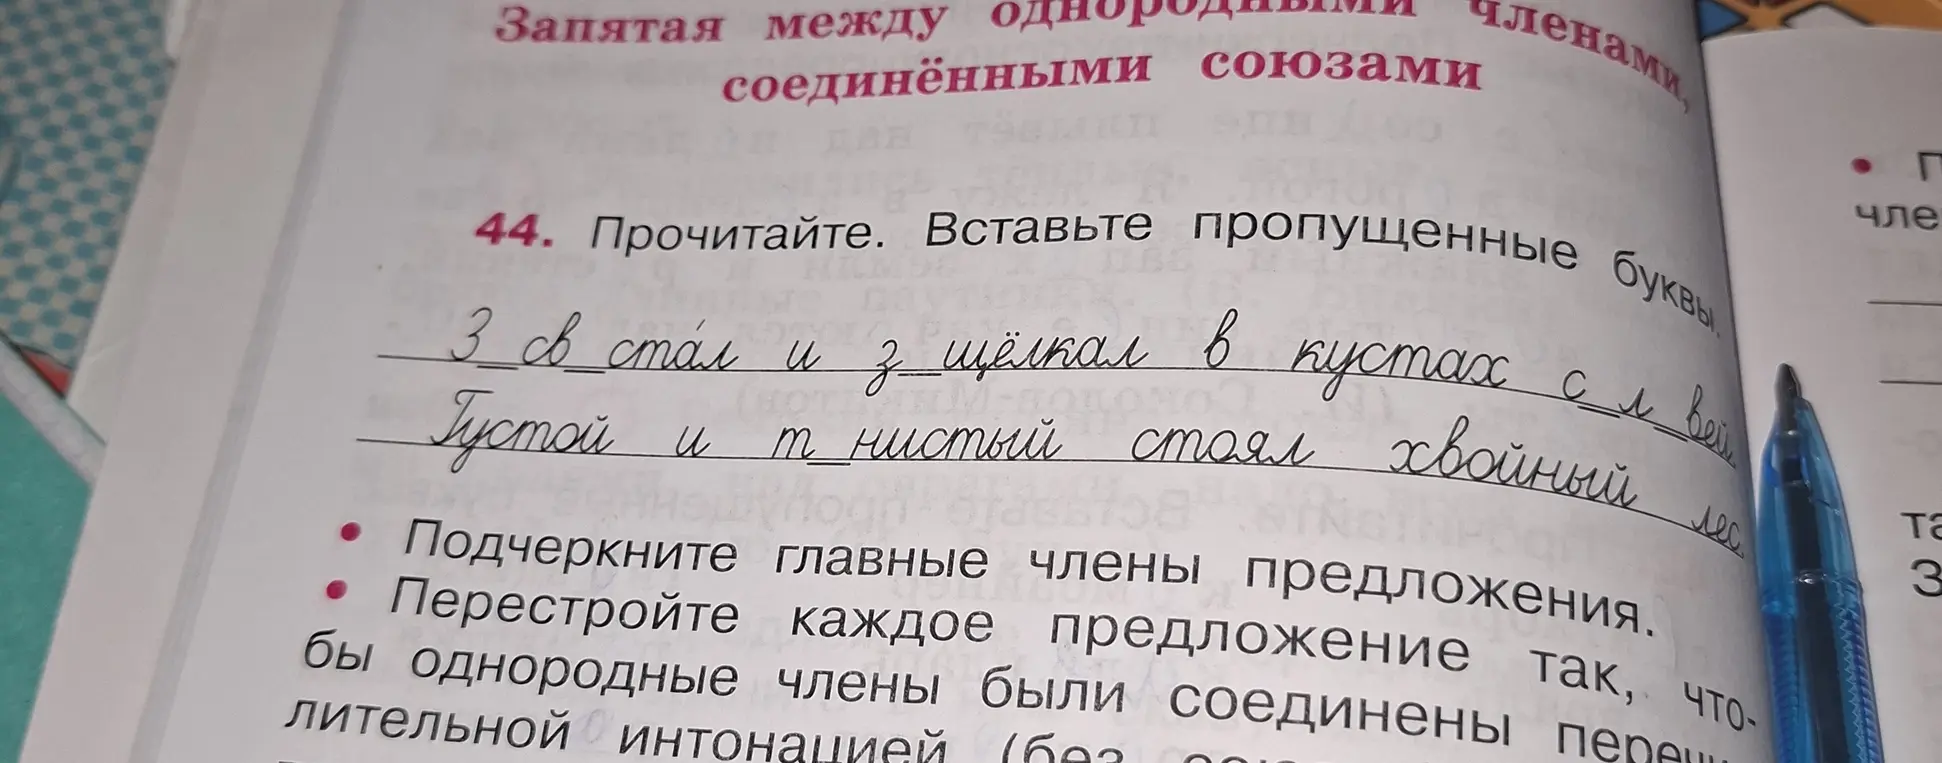 Запятая между однородными членами,
соединёнными союзами
44. Прочитайте. Вставьте пропущенные буквы.
З_св_ста́л и з_щёлкал в кустах с_л_вей.
Густой и т_нистый стоял хвойный лес.
• Подчеркните главные члены предложения.
• Перестройте каждое предложение так, что-
бы однородные члены были соединены
лительной интонацией (без
• П
чле
та
З